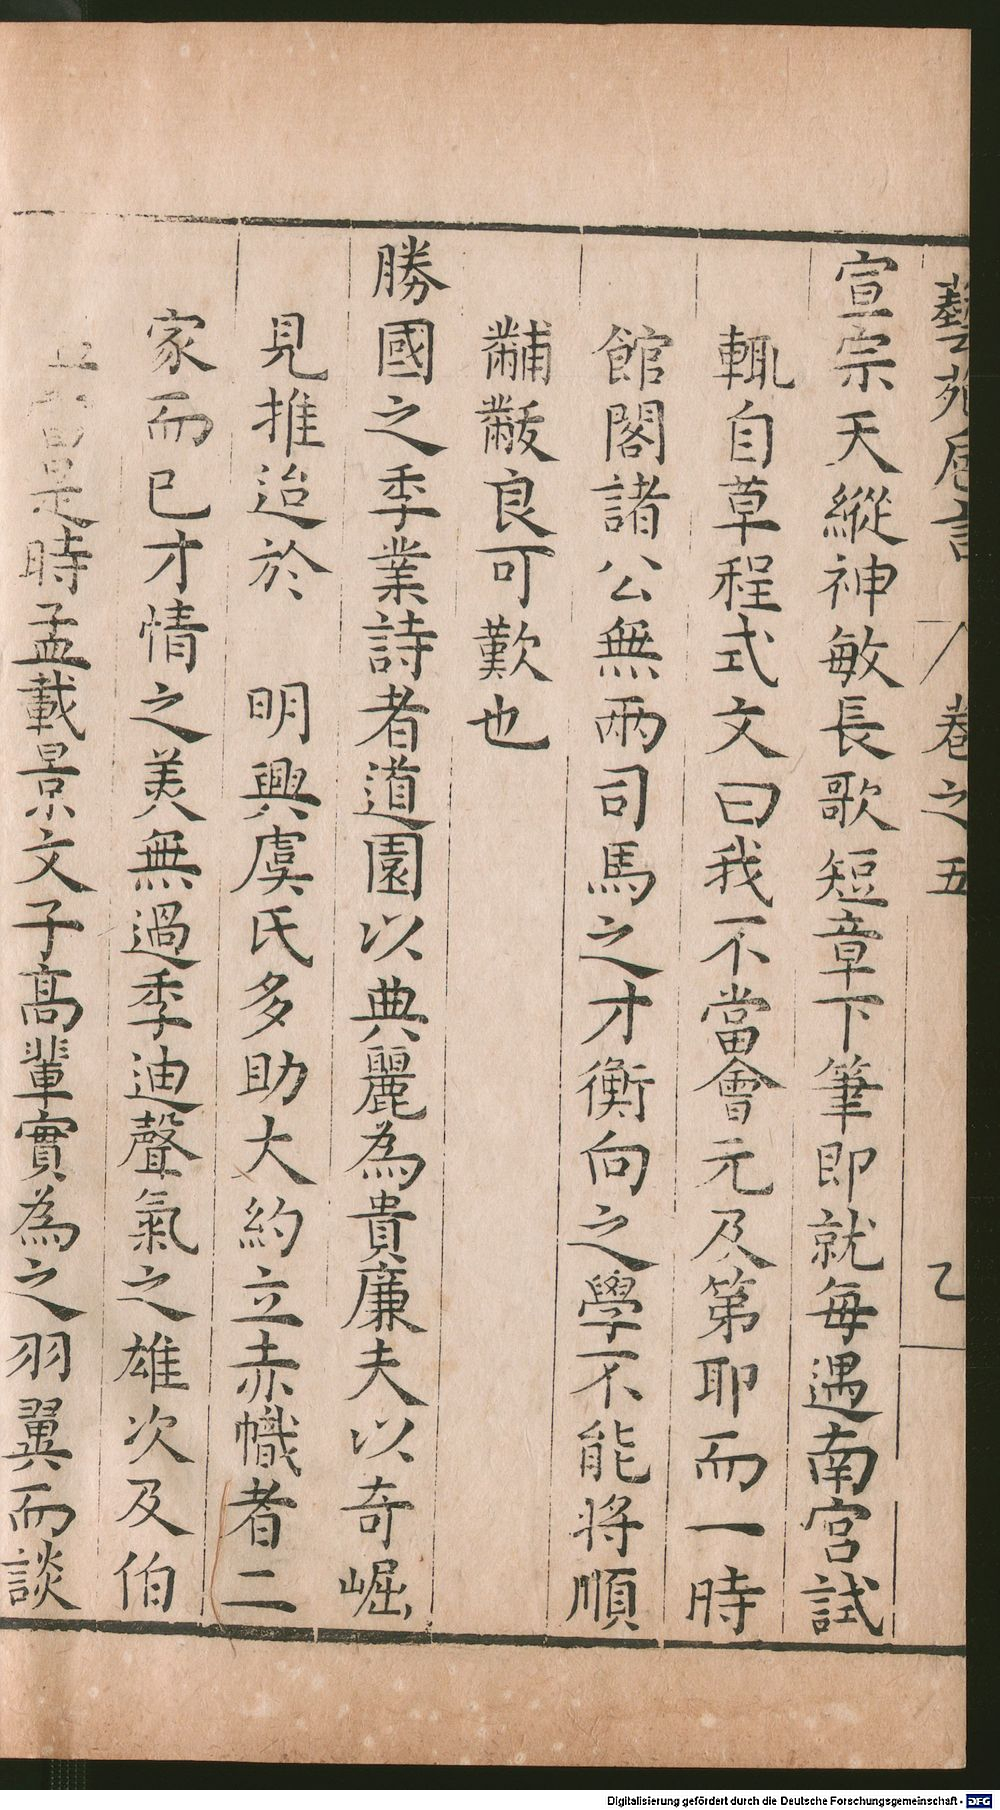 藝苑巵言 卷之五 乙
宣宗天縱神敏長歌短章下筆即就每遇南宮試
輒自草程式文曰我不當會元及第耶而一時
館閣諸公無兩司馬之才衡向之學不能將順
黼黻良可歎也
勝國之季業詩者道園以典麗為貴廉夫以奇崛
見推迨於 明興虞氏多助大約立赤幟者二
家而已才情之美無過季迪聲氣之雄次及伯
當是時孟載景文子高輩實為之羽翼而談
Digitalisierung gefördert durch die Deutsche Forschungsgemeinschaft - DFG